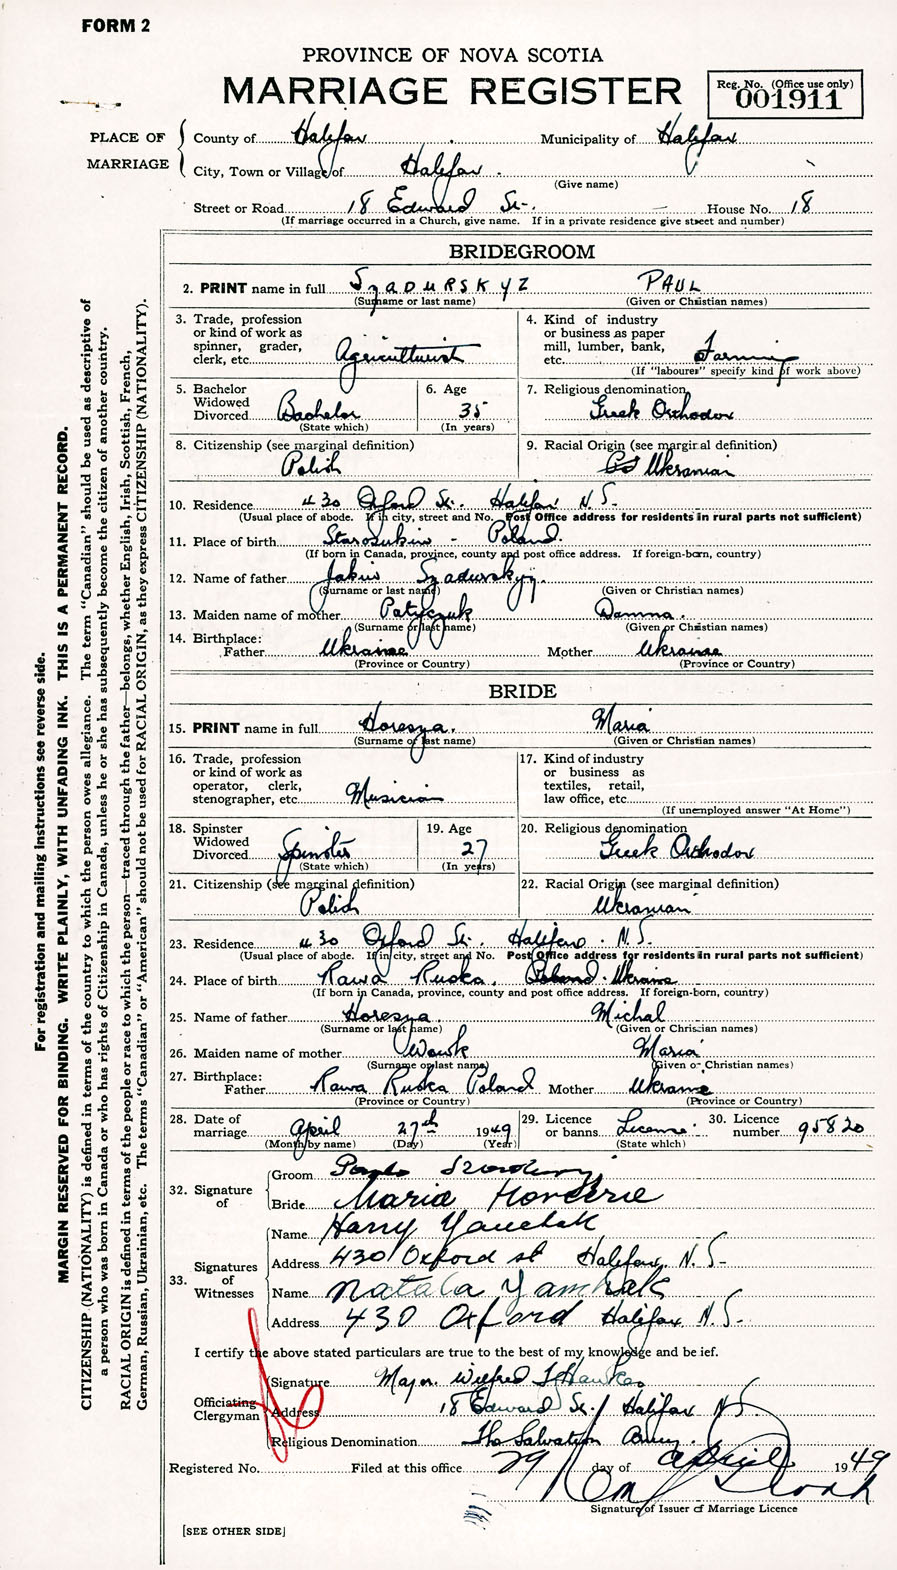 FORM 2
PROVINCE OF NOVA SCOTIA
MARRIAGE REGISTER
Reg. No. (Office use only)
001911
PLACE OF MARRIAGE
County of Halifax Municipality of Halifax
City, Town or Village of Halifax.
(Give name)
Street or Road 18 Edward St. House No. 18
(If marriage occurred in a Church, give name. If in a private residence give street and number)
BRIDEGROOM
2. PRINT name in full SZADURSKYZ PAUL
(Surname or last name) (Given or Christian names)
3. Trade, profession or kind of work as spinner, grader, clerk, etc. Agriculturist
4. Kind of industry or business as paper mill, lumber, bank, etc. Farming
(If "labourer" specify kind of work above)
5. Bachelor Widowed Divorced Bachelor
(State which)
6. Age 35
(In years)
7. Religious denomination
Greek Orthodox
8. Citizenship (see marginal definition)
Polish
9. Racial Origin (see marginal definition)
Ukranian
10. Residence 430 Oxford St. Halifax N.S.
(Usual place of abode. If in city, street and No. Post Office address for residents in rural parts not sufficient)
11. Place of birth - Poland.
(If born in Canada, province, county and post office address. If foreign-born, country)
12. Name of father Jakiw Szadurskyj.
(Surname or last name) (Given or Christian names)
13. Maiden name of mother Patyczuk
(Surname or last name) (Given or Christian names)
14. Birthplace:
Father Ukraine Mother Ukraine
(Province or Country) (Province or Country)
BRIDE
15. PRINT name in full Horesza. Maria
(Surname or last name) (Given or Christian names)
16. Trade, profession or kind of work as operator, clerk, stenographer, etc. Musician
17. Kind of industry or business as textiles, retail, law office, etc.
(If unemployed answer "At Home")
18. Spinster Widowed Divorced Spinster
(State which)
19. Age 27
(In years)
20. Religious denomination
Greek Orthodox
21. Citizenship (see marginal definition)
Polish
22. Racial Origin (see marginal definition)
Ukranian
23. Residence 430 Oxford St. Halifax. N.S.
(Usual place of abode. If in city, street and No. Post Office address for residents in rural parts not sufficient)
24. Place of birth Rawa Ruska. Poland Ukraine
(If born in Canada, province, county and post office address. If foreign-born, country)
25. Name of father Horesza. Michal
(Surname or last name) (Given or Christian names)
26. Maiden name of mother Wowk Maria
(Surname or last name) (Given or Christian names)
27. Birthplace:
Father Rawa Ruska Poland Mother Ukraine
(Province or Country) (Province or Country)
28. Date of marriage April 27th 1949
(Month by name) (Day) (Year)
29. Licence or banns License.
(State which)
30. Licence number 95820
32. Signature of
Groom
Bride Maria
33. Signatures of Witnesses
Name Harry
Address 430 Oxford st Halifax, N.S.
Name
Address 430 Oxford Halifax, N.S.
I certify the above stated particulars are true to the best of my knowledge and belief.
Officiating Clergyman
Signature Major. Wilfred Hawkes
Address 18 Edward St. Halifax N.S.
Religious Denomination The Salvation Army.
Registered No. Filed at this office 29 day of April 1949
Signature of Issuer of Marriage Licence
[SEE OTHER SIDE]
For registration and mailing instructions see reverse side.
MARGIN RESERVED FOR BINDING. WRITE PLAINLY, WITH UNFADING INK. THIS IS A PERMANENT RECORD.
CITIZENSHIP (NATIONALITY) is defined in terms of the country to which the person owes allegiance. The term "Canadian" should be used as descriptive of
a person who was born in Canada or who has rights of Citizenship in Canada, unless he or she has subsequently become the citizen of another country.
RACIAL ORIGIN is defined in terms of the people or race to which the person—traced through the father—belongs, whether English, Irish, Scottish, French,
German, Russian, Ukrainian, etc. The terms "Canadian" or "American" should not be used for RACIAL ORIGIN, as they express CITIZENSHIP (NATIONALITY).